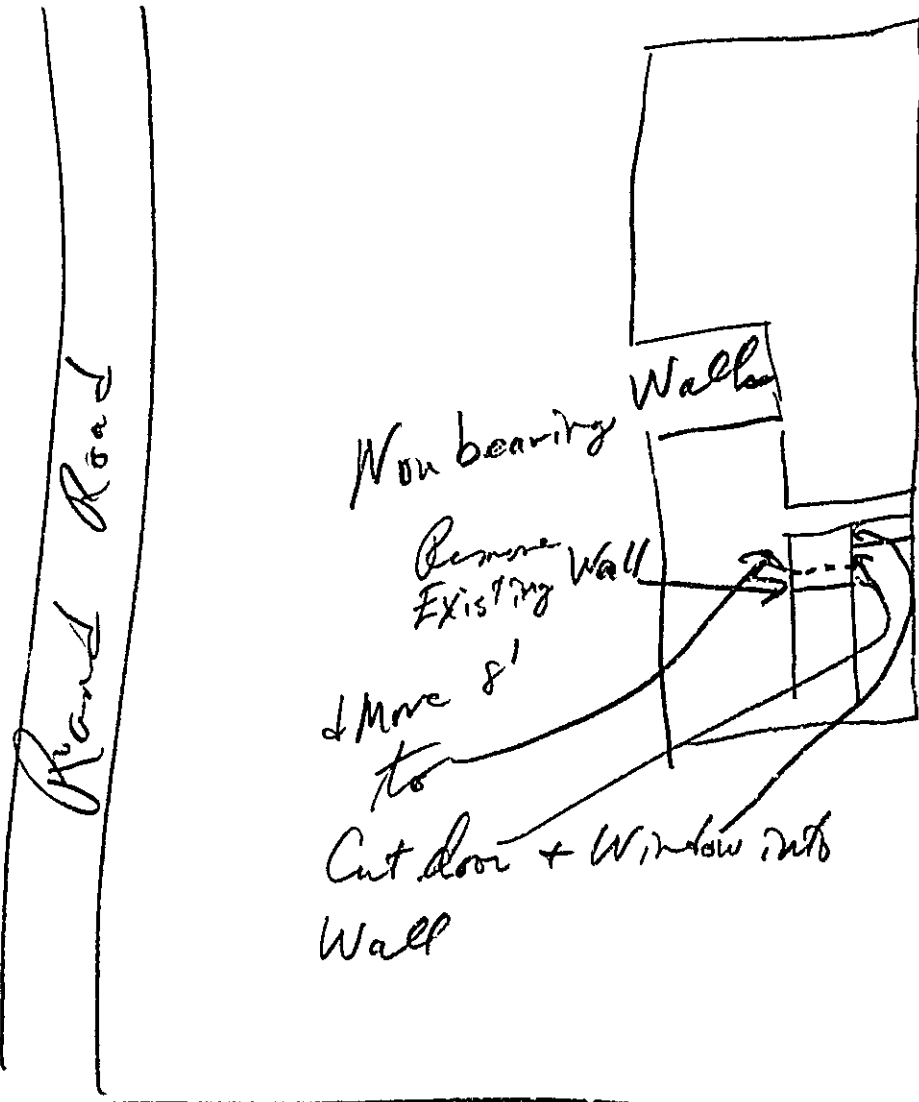 Rand Road
Non bearing Walls
Remove
Existing Wall
& Move 8'
to
Cut door + Window into
Wall